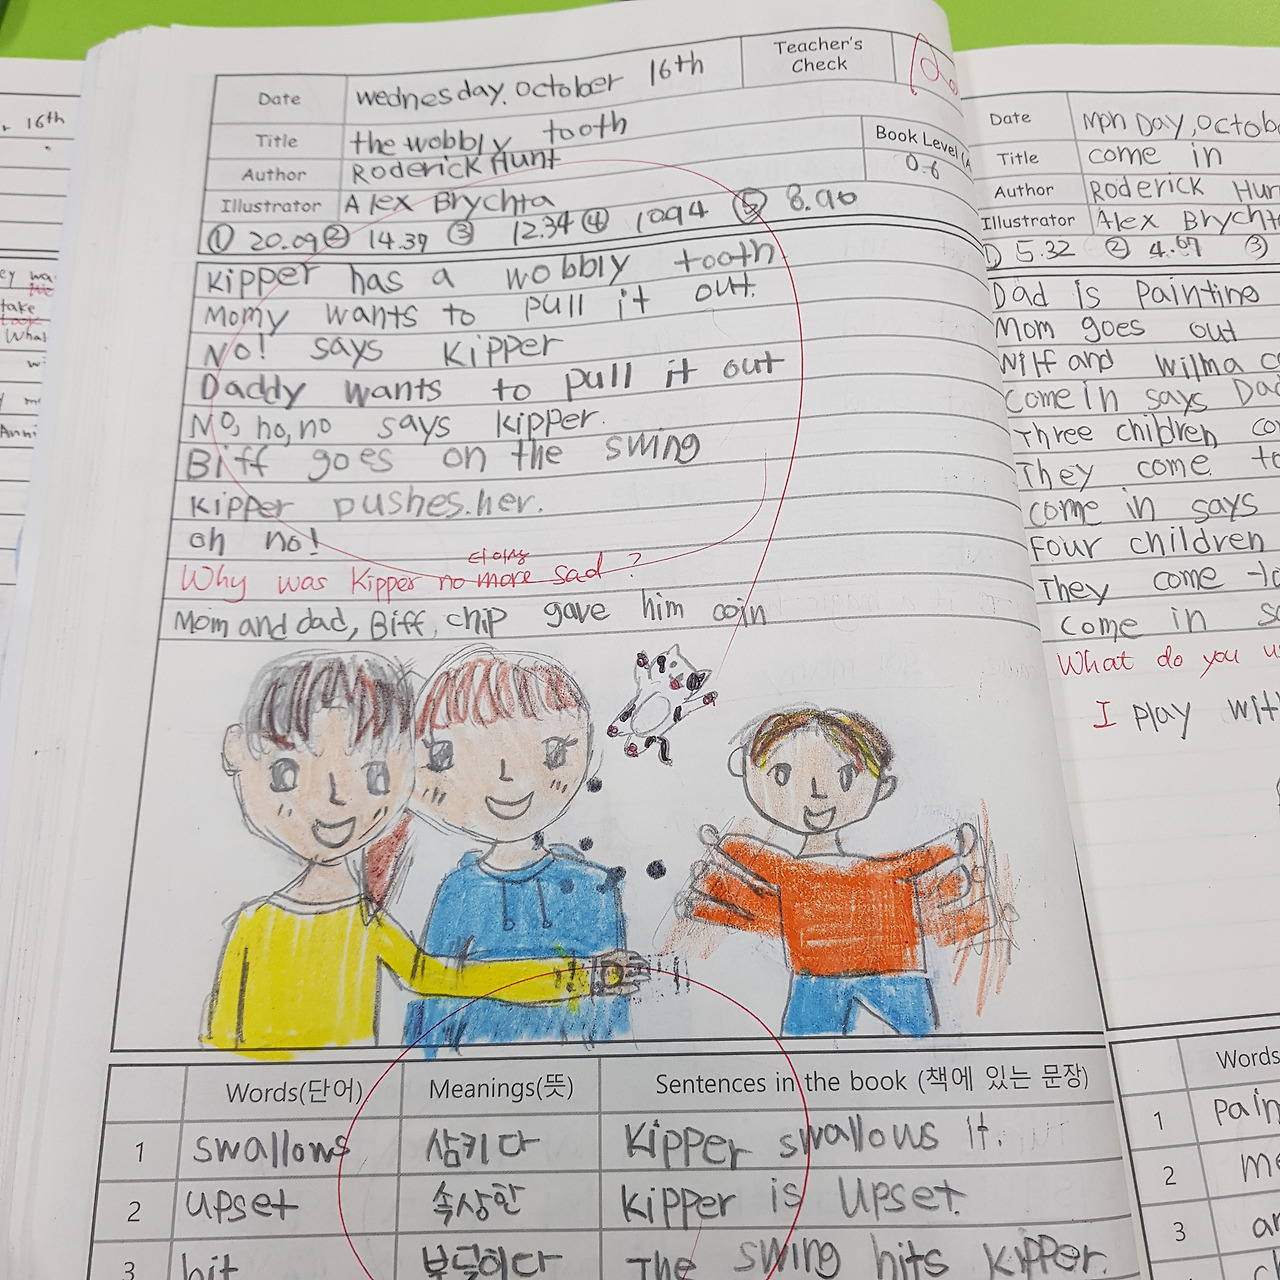 Date wednesday, october 16th Teacher's Check
Title the wobbly tooth
Author Roderick Hunt Book Level
0.6
Illustrator Alex Brychta
① 20.09 ② 14.37 ③ 12.34 ④ 10.94 ⑤ 8.90
Kipper has a wobbly tooth
Momy wants to pull it out.
No! says Kipper
Daddy wants to pull it out
No, no, no says kipper.
Biff goes on the swing
Kipper pushes.her.
oh no!
더이상
Why was Kipper no more sad ?
Mom and dad, Biff, chip gave him coin
Words(단어) Meanings(뜻) Sentences in the book (책에 있는 문장)
1 swallows 삼키다 Kipper swallows it.
2 upset 속상한 Kipper is upset.
3 hit 부딪히다 The swing hits Kipper.
16th
take
What
Date monday, octob
Title come in
Author Roderick Hun
Illustrator Alex Brycht
① 5.32 ② 4.67 ③
Dad is painting
Mom goes out
Wilf and wilma
come in says Dad
Three children
They come
come in says
Four children
They come
come in
What do you
I play wit
Words
1 pain
2 me
3 an